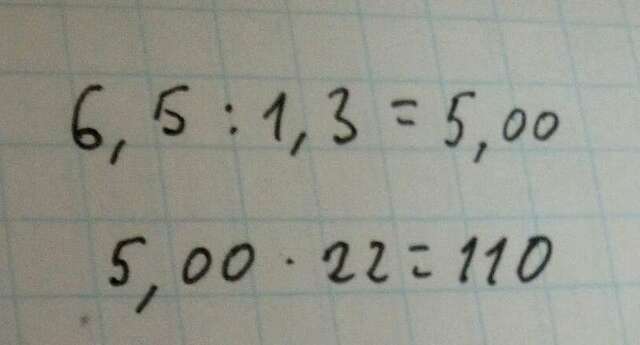 6,5:1,3=5,00
5,00·22=110